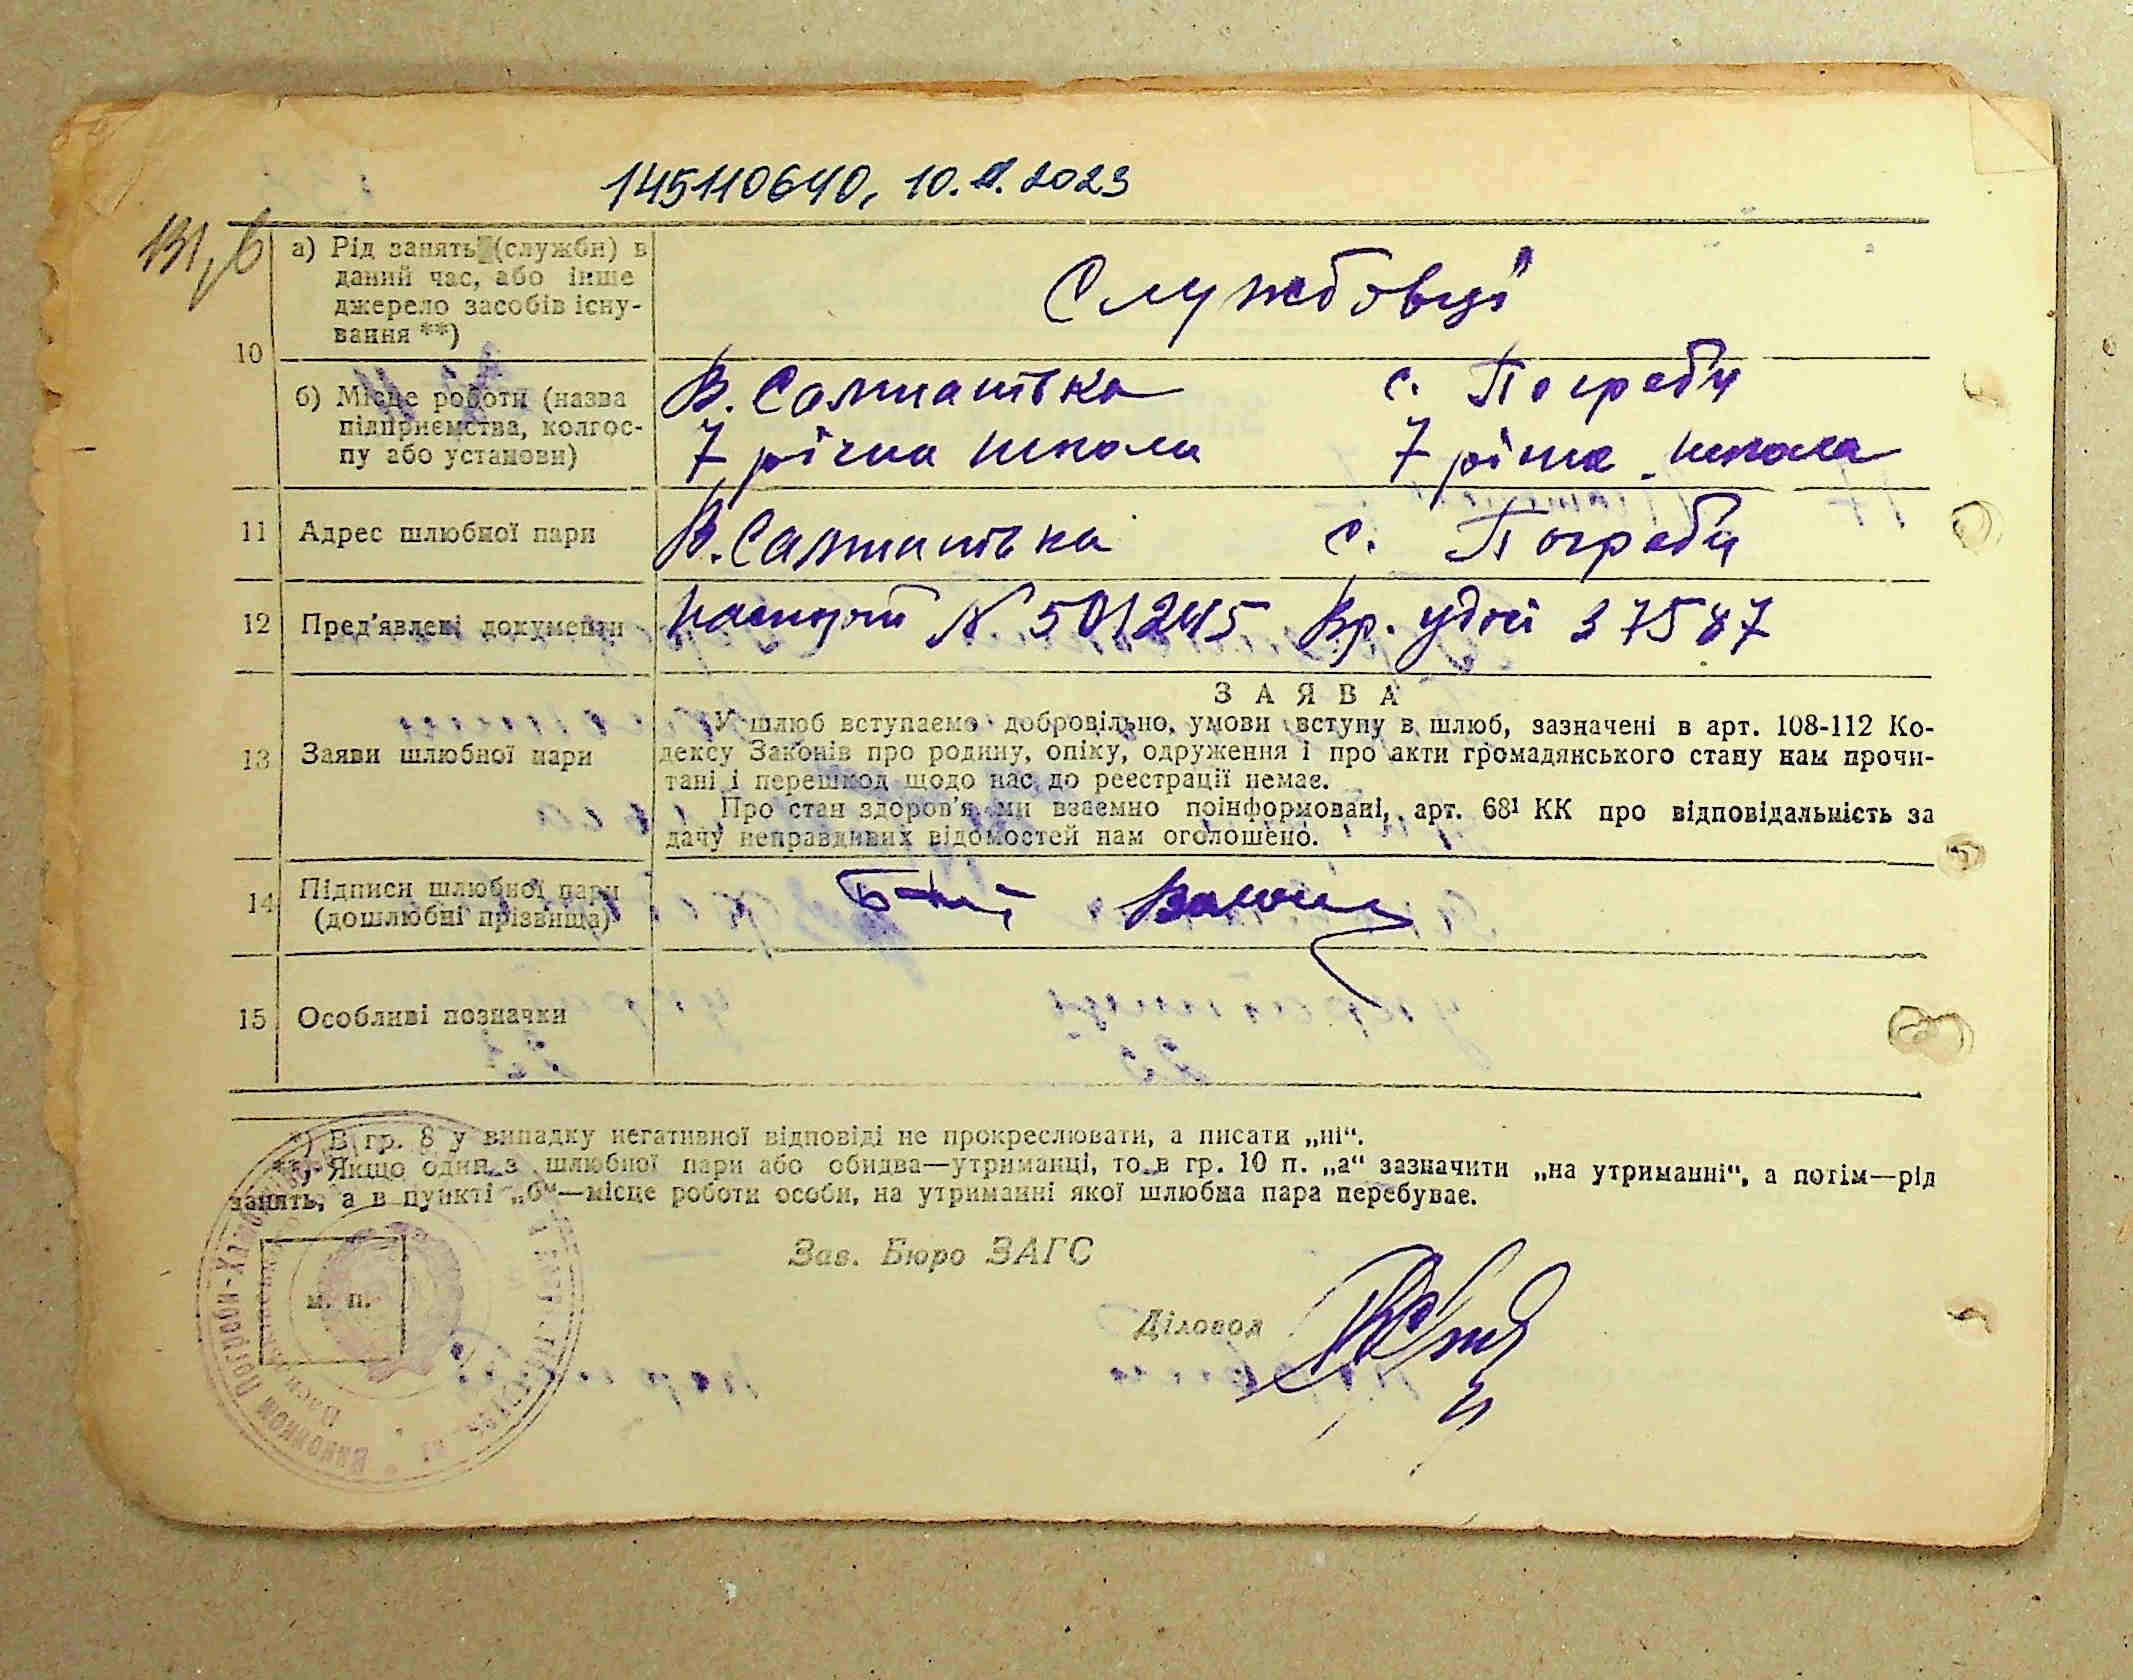 145110640, 10.II.2023
131, б
10
а) Рід занять (служби) в
даний час, або інше
джерело засобів існу-
вання **)
Службовці
б) Місце роботи (назва
підприємства, колгос-
пу або установи)
В. Салтанівка с. Погреби
7 річна школа 7 річна школа
11 Адрес шлюбної пари В. Салтанівка с. Погреби
12 Пред'явлені документи паспорт № 501245 Вр. удост 37587
13 Заяви шлюбної пари
ЗАЯВА
У шлюб вступаємо добровільно, умови вступу в шлюб, зазначені в арт. 108-112 Ко-
дексу Законів про родину, опіку, одруження і про акти громадянського стану нам прочи-
тані і перешкод щодо нас до реєстрації немає.
Про стан здоров'я ми взаємно поінформовані, арт. 68¹ КК про відповідальність за
дачу неправдивих відомостей нам оголошено.
14 Підписи шлюбної пари
(дошлюбні прізвища)
15 Особливі позначки
*) В гр. 8 у випадку негативної відповіді не прокреслювати, а писати „ні“.
**) Якщо один з шлюбної пари або обидва—утриманці, то в гр. 10 п. „а“ зазначити „на утриманні“, а потім—рід
занять, а в пункті „б“—місце роботи особи, на утриманні якої шлюбна пара перебуває.
Зав. Бюро ЗАГС
м. п.
Діловод